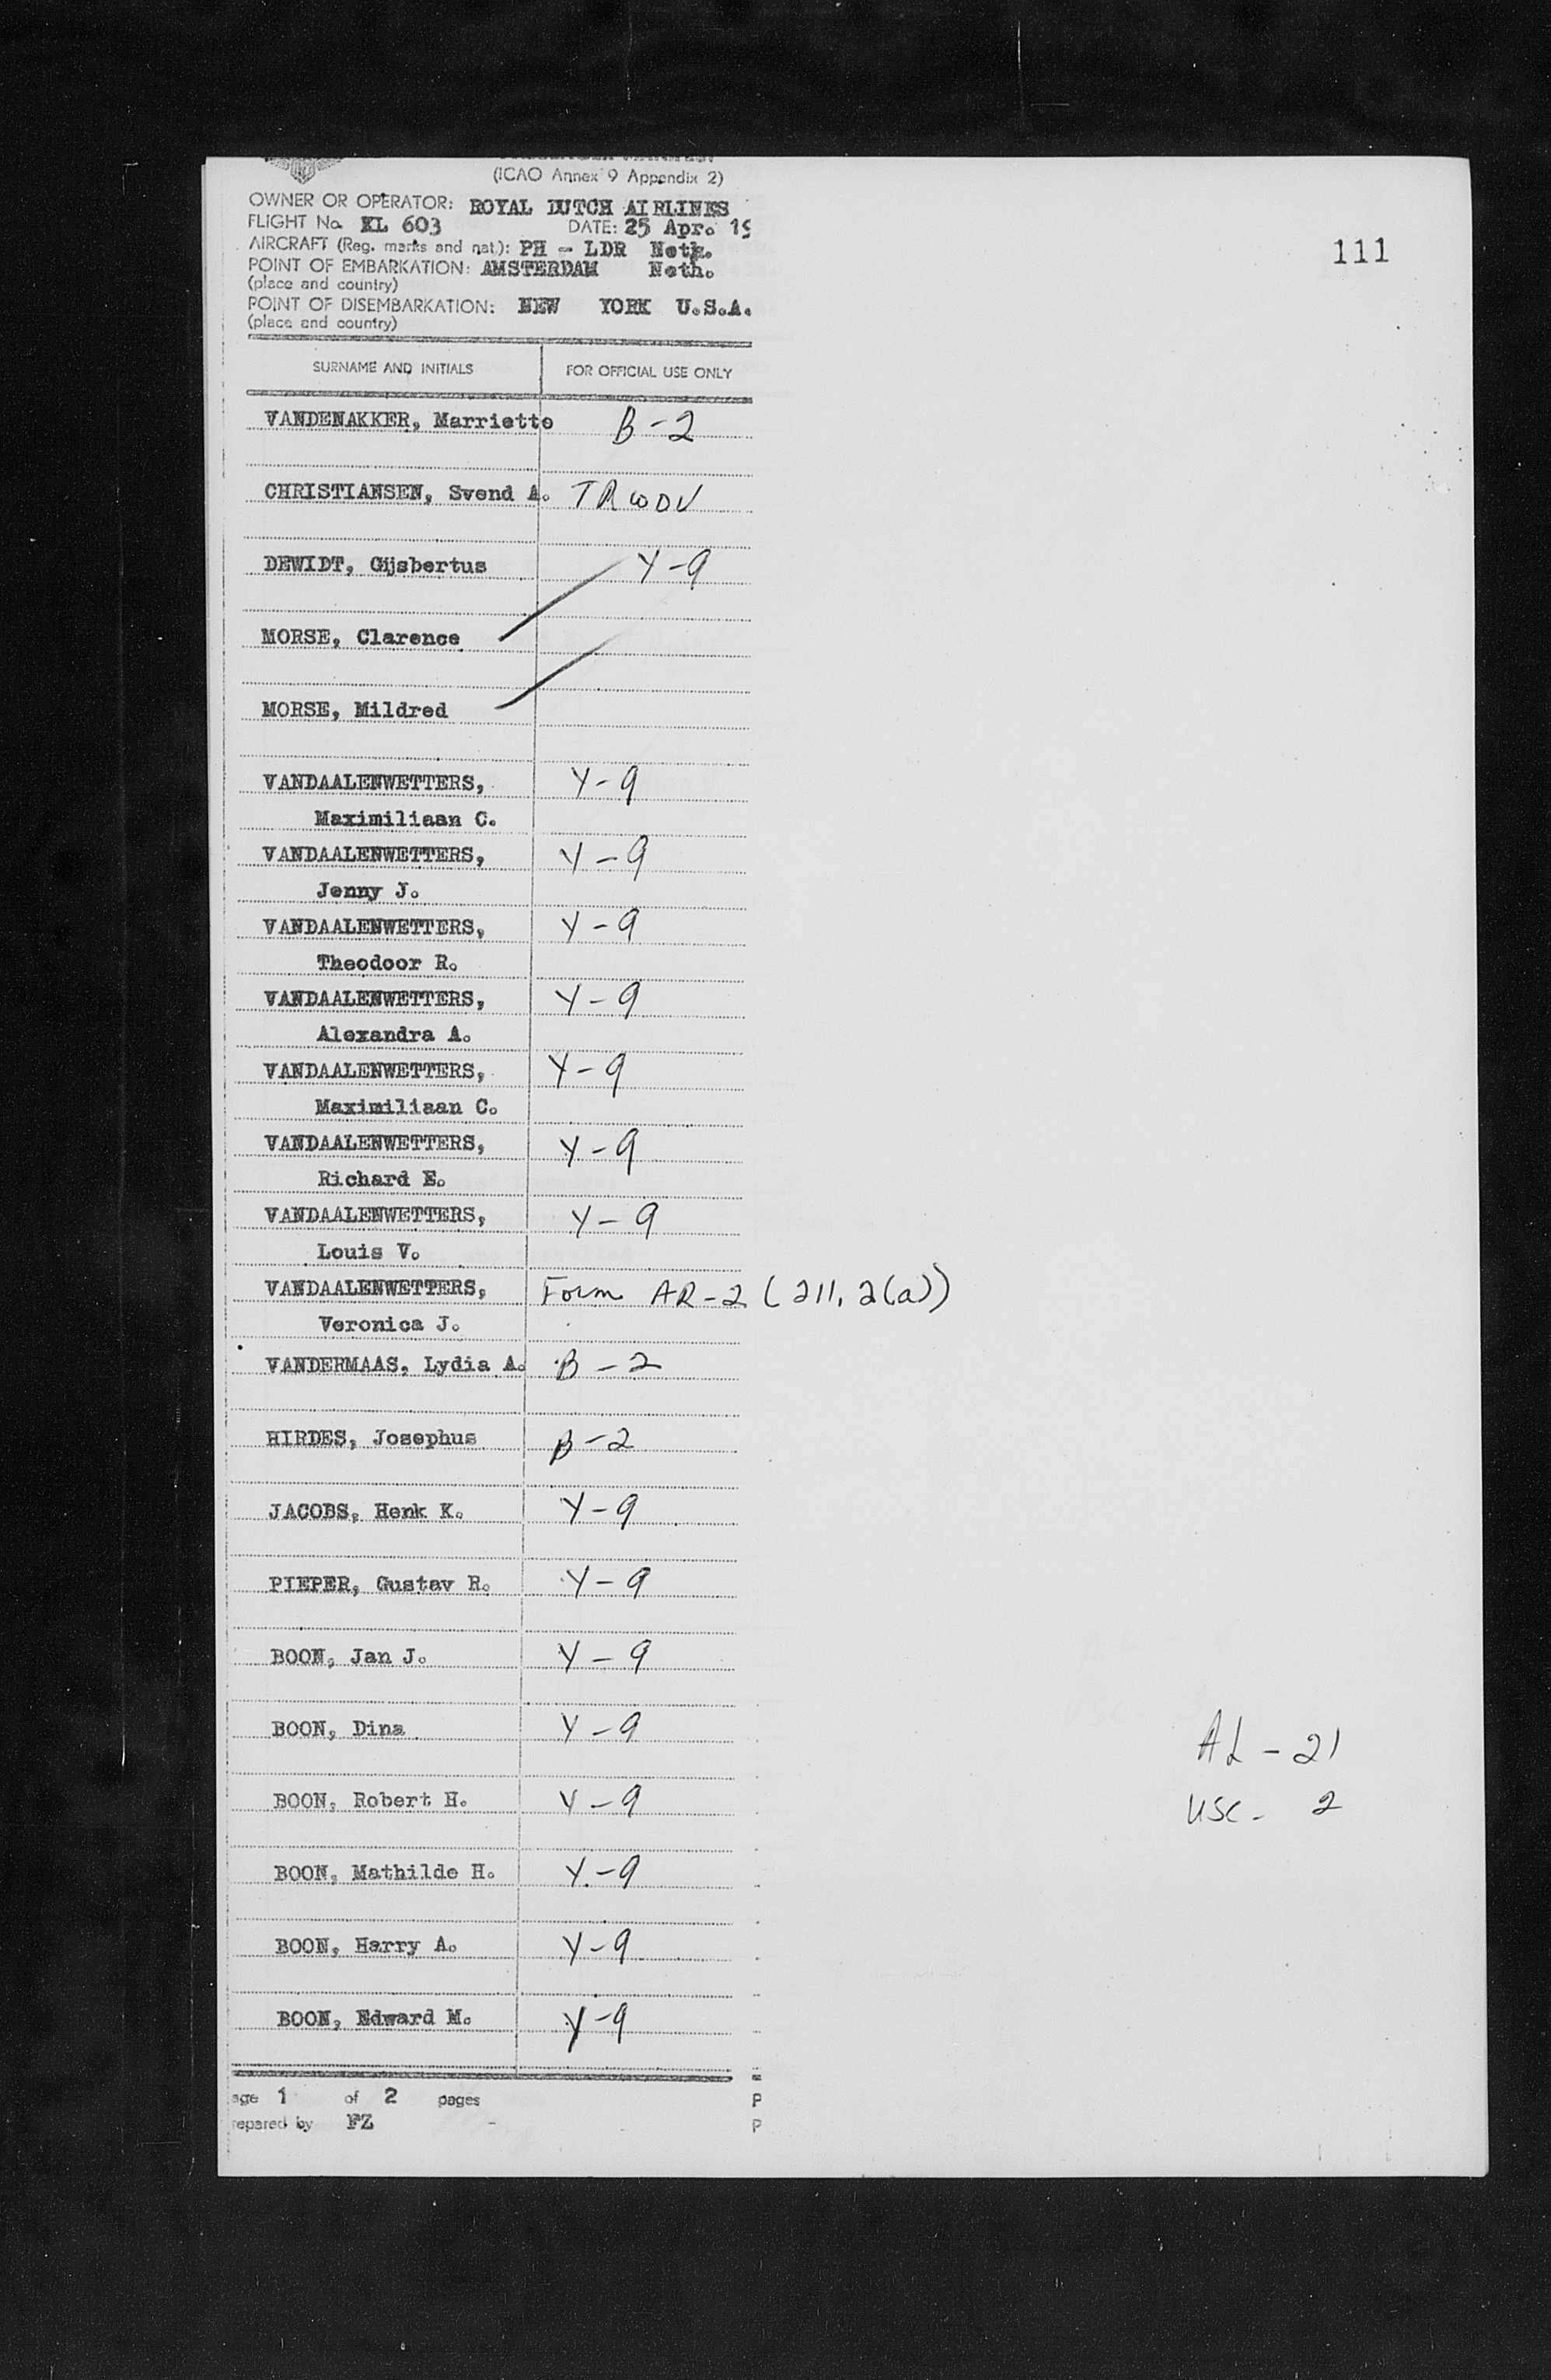 (ICAO Annex 9 Appendix 2)
OWNER OR OPERATOR: ROYAL DUTCH AIRLINES
FLIGHT No. KL 603 DATE: 25 Apr. 19
111
AIRCRAFT (Reg. marks and nat.): PH - LDR Neth.
POINT OF EMBARKATION: AMSTERDAM Neth.
(place and country)
POINT OF DISEMBARKATION: NEW YORK U.S.A.
(place and country)
SURNAME AND INITIALS FOR OFFICIAL USE ONLY
VANDENAKKER, Marriette B-2
CHRISTIANSEN, Svend A. TRWOV
DEWIDT, Gijsbertus Y-9
MORSE, Clarence
MORSE, Mildred
VANDAALENWETTERS, Y-9
Maximiliaan C.
VANDAALENWETTERS, Y-9
Jenny J.
VANDAALENWETTERS, Y-9
Theodoor R.
VANDAALENWETTERS, Y-9
Alexandra A.
VANDAALENWETTERS, Y-9
Maximiliaan C.
VANDAALENWETTERS, Y-9
Richard E.
VANDAALENWETTERS, Y-9
Louis V.
VANDAALENWETTERS, Form AR-2 (211.2(a))
Veronica J.
VANDERMAAS, Lydia A. B-2
HIRDES, Josephus B-2
JACOBS, Henk K. Y-9
PIEPER, Gustav R. Y-9
BOON, Jan J. Y-9
BOON, Dina Y-9
AL - 21
BOON, Robert H. Y-9
USC - 2
BOON, Mathilde H. Y-9
BOON, Harry A. Y-9
BOON, Edward M. Y-9
age 1 of 2 pages P
repared by FZ P